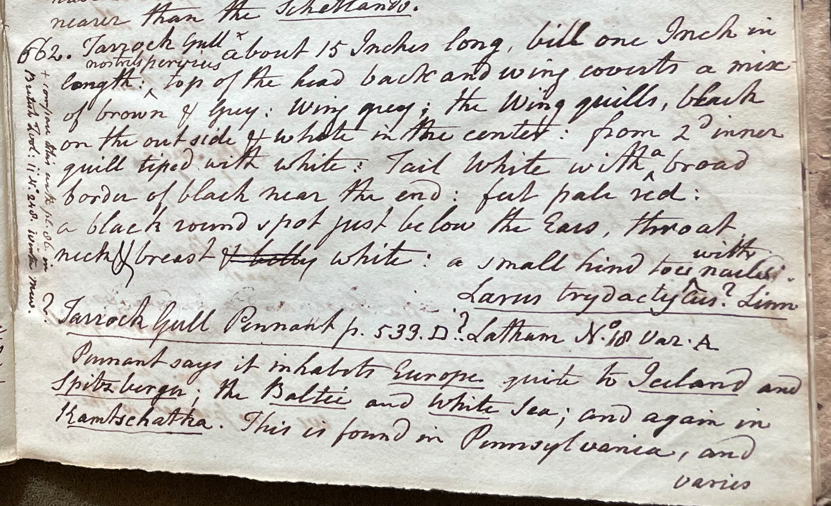 nearer than the Schetlands.
662. Tarrock Gull × about 15 Inches long, bill one Inch in
nostrils pervious
length: ^ top of the head back and wing coverts a mix
of brown & Grey: Wing grey; the Wing quills, black
on the outside & white in the center: from 2d inner
quill tiped with white: Tail White with ^a broad
border of black near the end: feet pale red:
a black round spot just below the Ears, throat
neck & breast & belly white: a small hind toe with nailes.
Larus trydactylus? Linn
Tarrock Gull Pennant p. 539. D? Latham No. 18 Var. A
Pennant says it inhabits Europe quite to Iceland and
Spitzbergen; the Baltic and White Sea; and again in
Kamtschatka. This is found in Pennsylvania, and
varies
+ compare this with pl. 86 in
British Zool: ii. 248. Winter Mew.
?